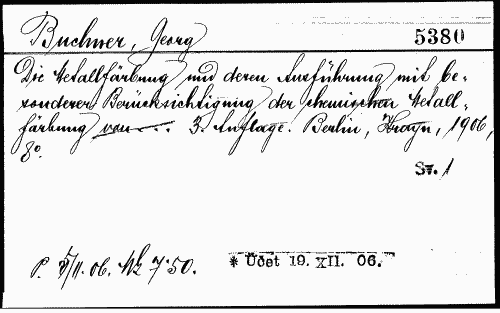 Buchner, Georg
5380
Die Metallfärbung und deren Ausführung mit be-
sonderer Berücksichtigung der chemischen Metall-
färbung von . . . 3. Auflage. Berlin, Krayn, 1906,
8°.
Sv. 1
P. 5/11. 06. Mk 7·50.
* Účet 19. XII. 06.